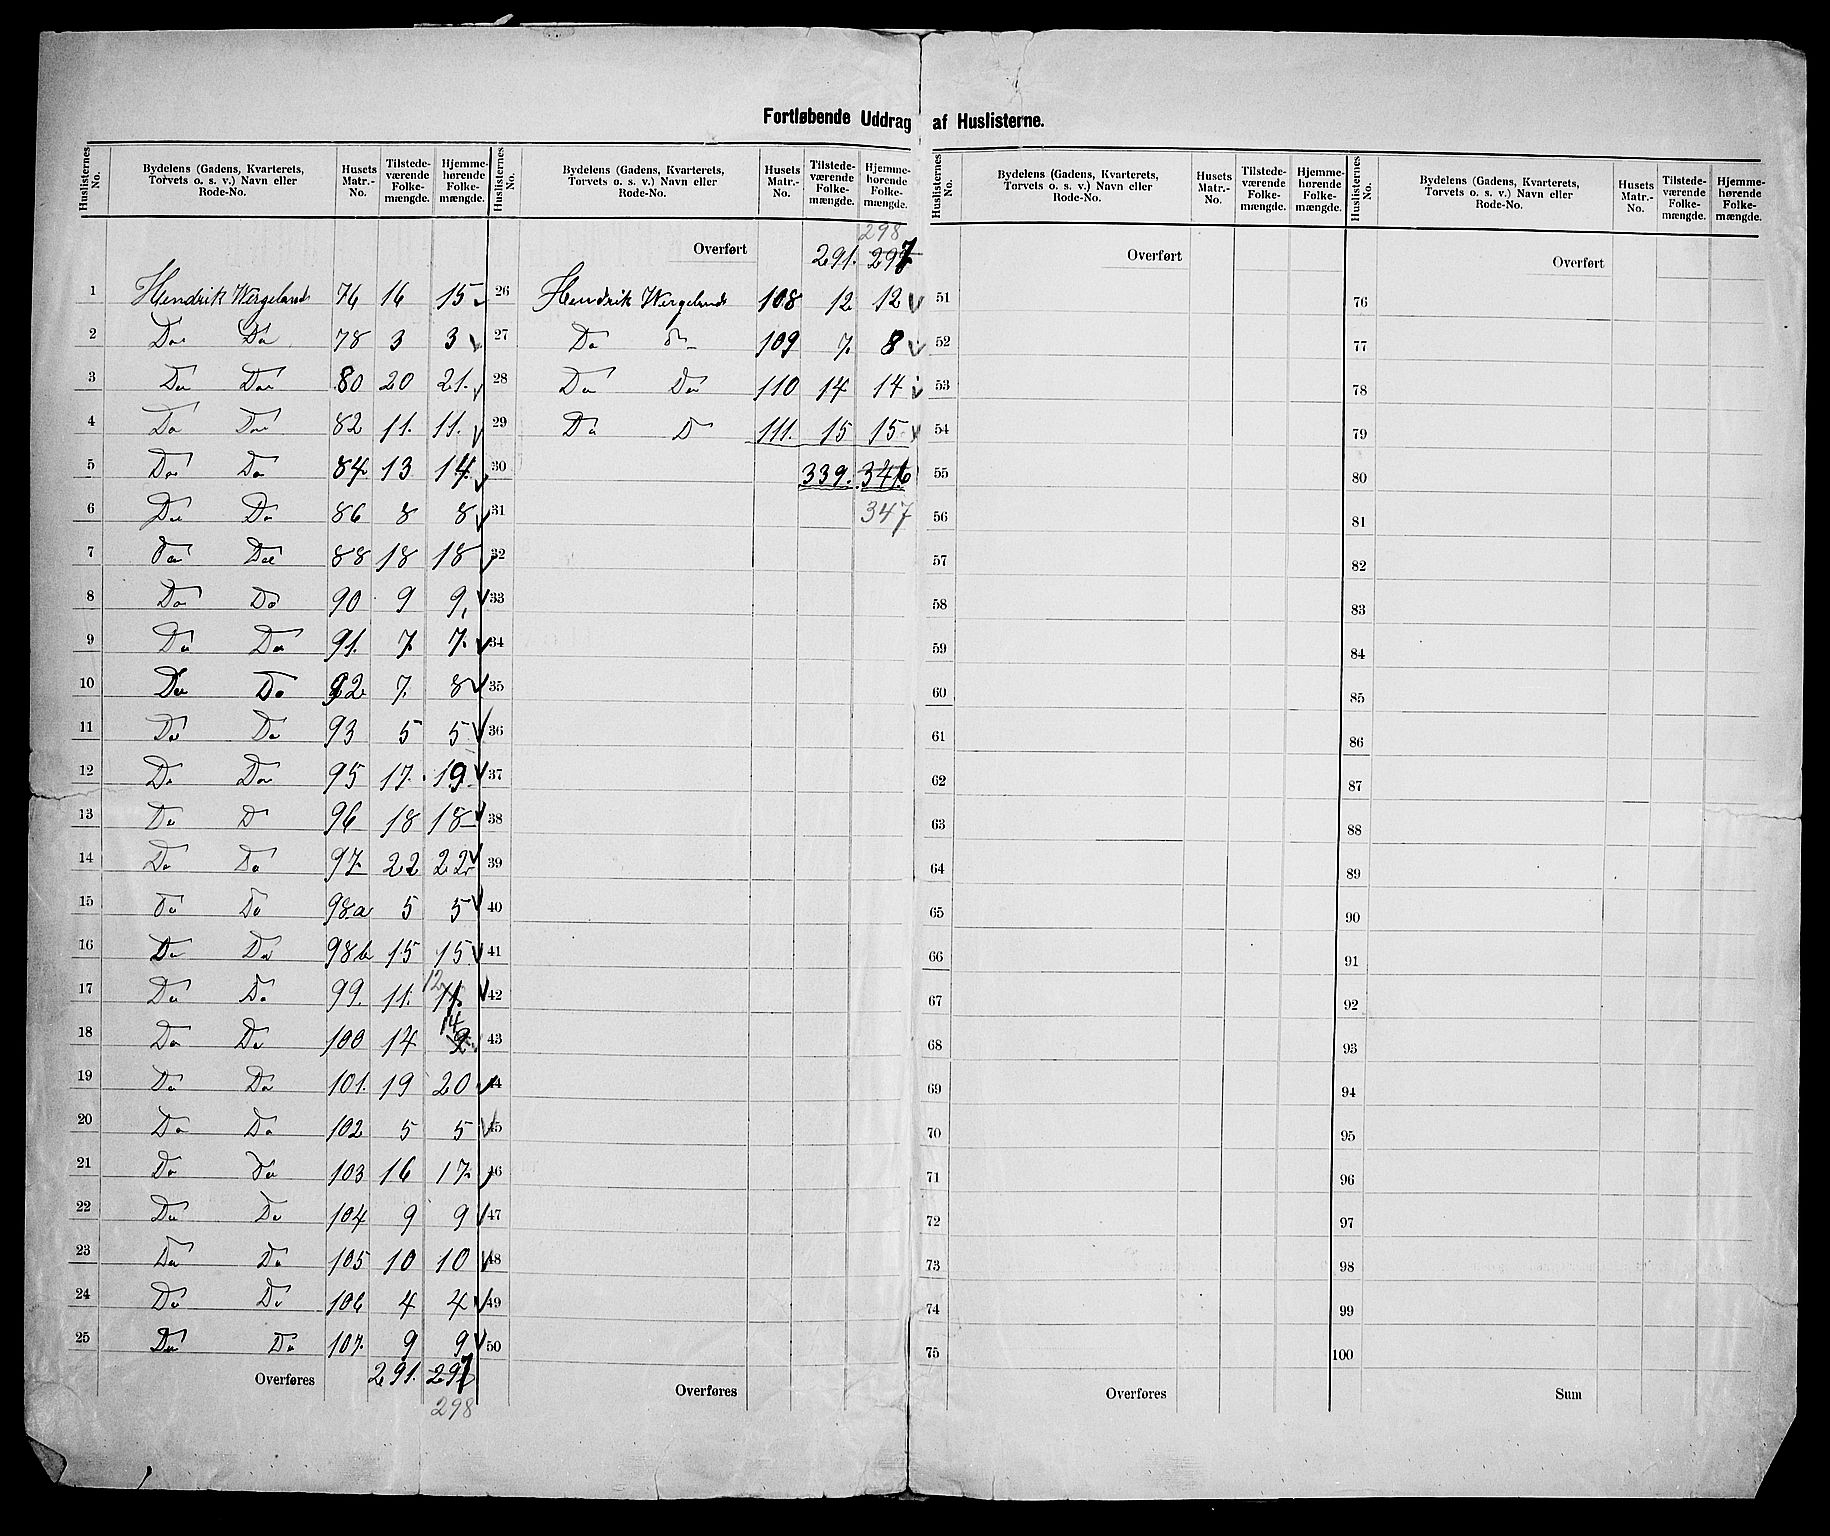 Fortløbende Uddrag af Huslisterne.
Huslisternes No. | Bydelens (Gadens, Kvarterets, Torvets o. s. v.) Navn eller Rode-No. | Husets Matr.-No. | Tilstedeværende Folkemængde. | Hjemmehørende Folkemængde.
1 Hendrik Wergelands 76 16 15
2 Do Do 78 3 3
3 Do Do 80 20 21.
4 Do Do 82 11. 11.
5 Do Do 84 13 14
6 Do Do 86 8 8
7 Do Do 88 18 18
8 Do Do 90 9 9
9 Do Do 91. 7. 7.
10 Do Do 92 7. 8
11 Do Do 93 5 5
12 Do Do 95 17. 19.
13 Do D 96 18 18
14 Do Do 97 22 22
15 Do Do 98a 5 5
16 Do Do 98b 15 15
17 Do Do 99. 11. 11. 12
18 Do Do 100 14 14
19 Do Do 101. 19 20
20 Do Do 102 5 5
21 Do Do 103 16 17.
22 Do Do 104 9 9
23 Do Do 105 10 10
24 Do Do 106 4 4
25 Do Do 107. 9 9
Overføres 291. 297
298
Huslisternes No. | Bydelens (Gadens, Kvarterets, Torvets o. s. v.) Navn eller Rode-No. | Husets Matr.-No. | Tilstedeværende Folkemængde. | Hjemmehørende Folkemængde.
298
Overført 291. 297
26 Hendrik Wergelands 108 12 12
27 Do Do 109 7. 8
28 Do Do 110 14 14
29 Do D 111. 15 15
30 339. 346
31 347
32
33
34
35
36
37
38
39
40
41
42
43
44
45
46
47
48
49
50
Overføres
Huslisternes No. | Bydelens (Gadens, Kvarterets, Torvets o. s. v.) Navn eller Rode-No. | Husets Matr.-No. | Tilstedeværende Folkemængde. | Hjemmehørende Folkemængde.
Overført
51
52
53
54
55
56
57
58
59
60
61
62
63
64
65
66
67
68
69
70
71
72
73
74
75
Overføres
Huslisternes No. | Bydelens (Gadens, Kvarterets, Torvets o. s. v.) Navn eller Rode-No. | Husets Matr.-No. | Tilstedeværende Folkemængde. | Hjemmehørende Folkemængde.
Overført
76
77
78
79
80
81
82
83
84
85
86
87
88
89
90
91
92
93
94
95
96
97
98
99
100
Sum